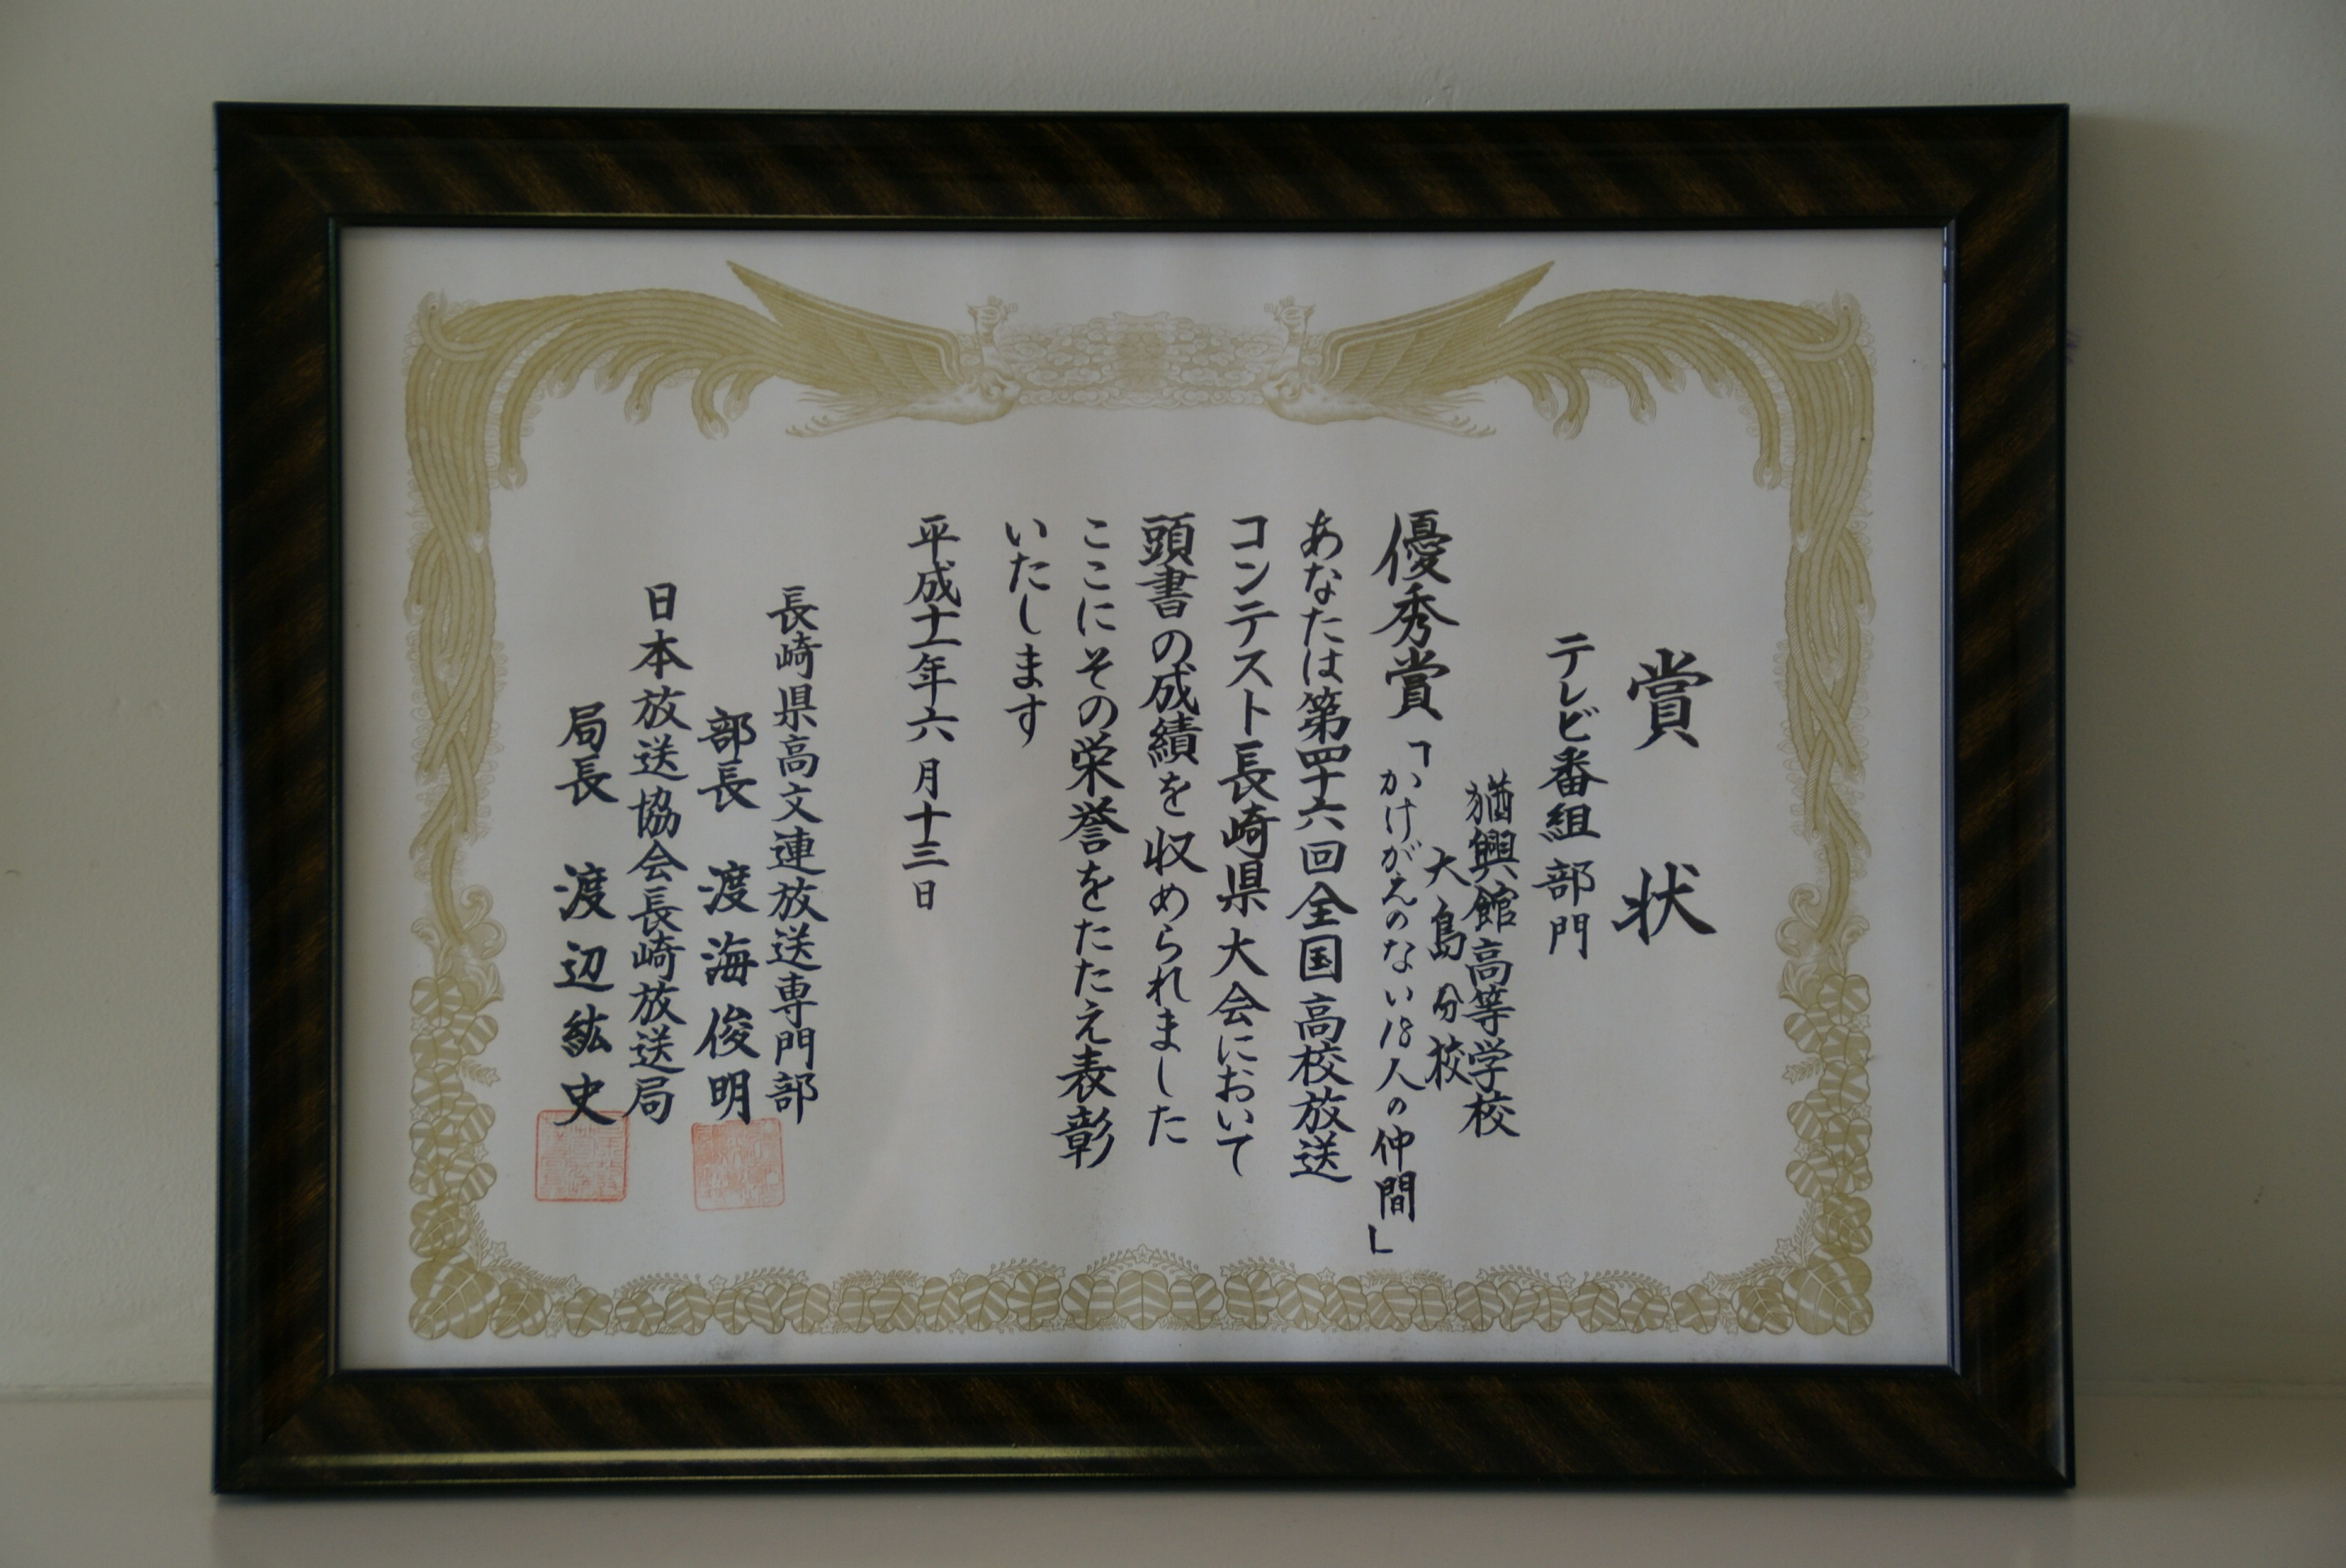 賞状
テレビ番組部門
猶興館高等学校
大島分校
優秀賞「かけがえのない18人の仲間」
あなたは第四十六回全国高校放送
コンテスト長崎県大会において
頭書の成績を収められました
ここにその栄誉をたたえ表彰
いたします
平成十一年六月十三日
長崎県高文連放送専門部
部長 渡海俊明
日本放送協会長崎放送局
局長 渡辺紘史